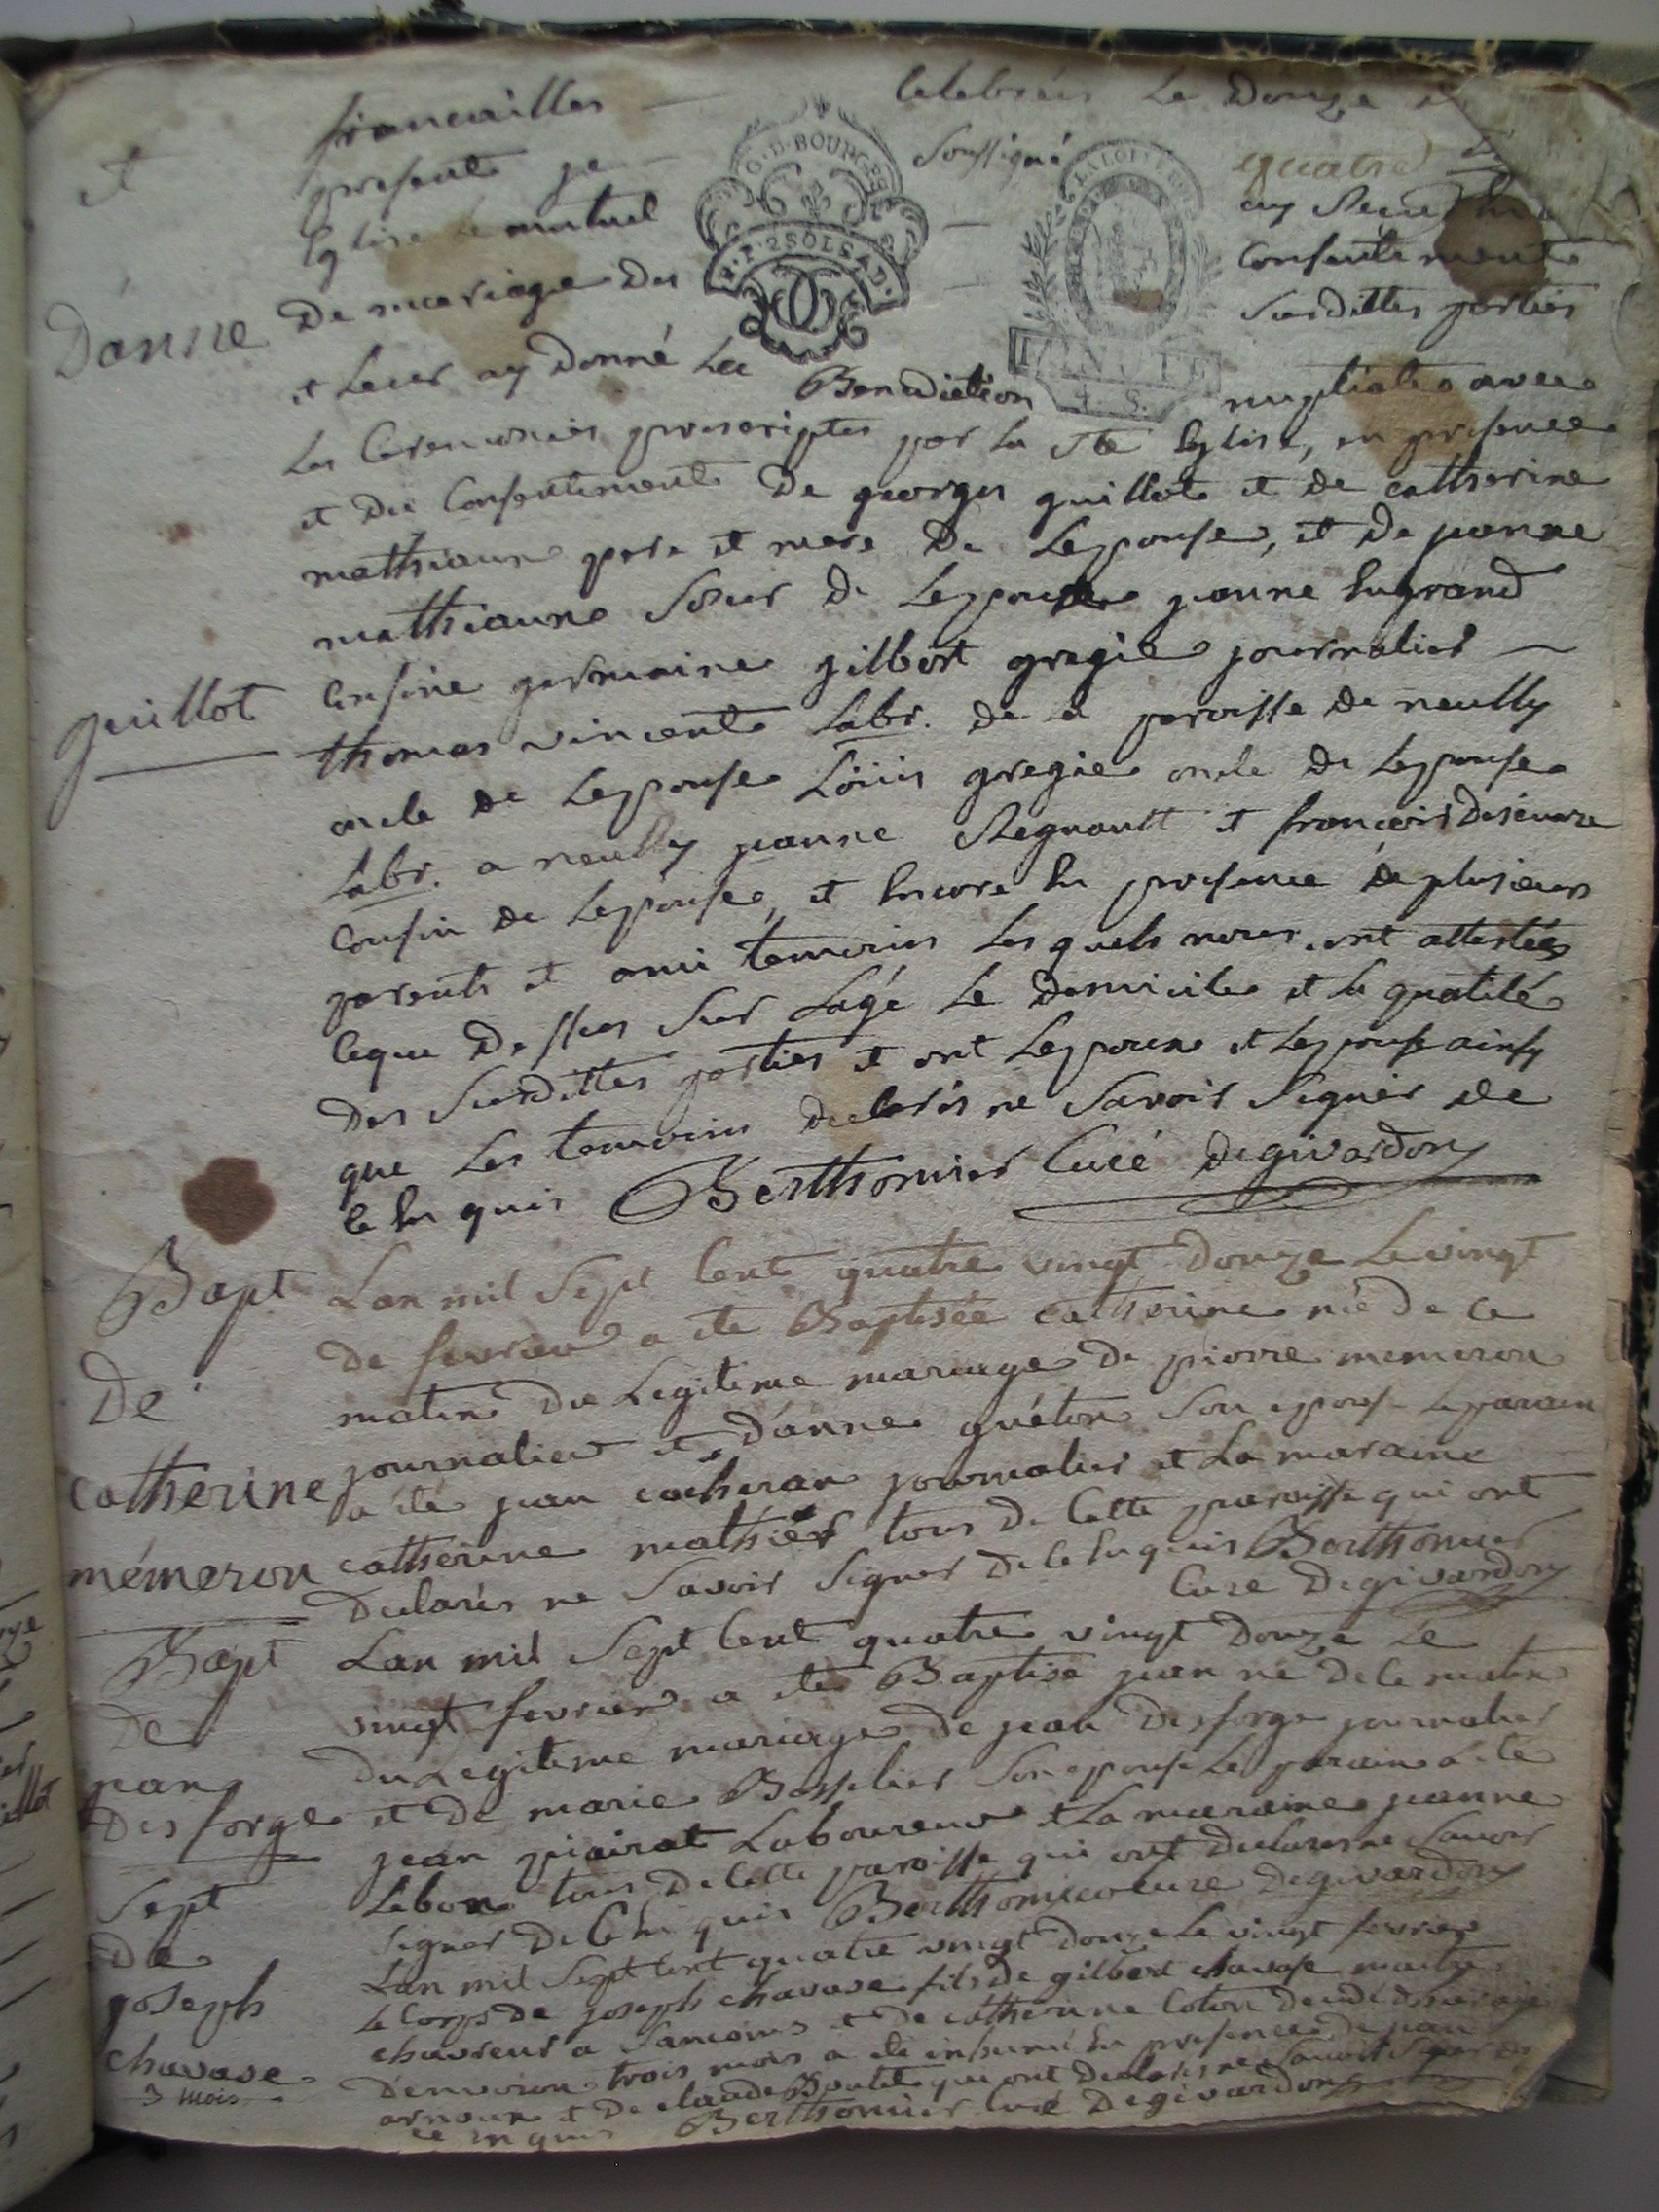 francailles celebrées le Douze
et presente je soussigné quatre
Eglise le mutuel ay Recu
G. D. BOURGES
2 SOLS
LA LOI
MINUTE
4 S.
consentement
Danne De mariage Des susdittes parties
et leur ay Donné La Benediction nuptiale avec
Les Ceremonies prescriptes par la ste Eglise, en presence
et Du Consentement De george guillot et de catherine
mathiaune pere et mere De Lepouse, et De jeanne
mathiaune soeur De Lepouse jeanne Lugrand
guillot Cousine germaine gilbert gregie journalier
thomas vincent Labr. de paroisse De neully
oncle De Lepouse Loüis gregie oncle De Lepouse
Labr. a neully jeanne Regnault et francois
Cousin De Lepouse, et Encore En presence De plusieurs
parents et ami temoins Les quels nous ont attestées
ceque Dessus Sur Lagé Le Domicile et La qualité
Des Susdittes parties et ont Lepoux et Lepouse ainsy
que Les temoins declarés ne Savoir Signer De
ce En quis Berthomier Curé Degivardon
Bapt Lan mil Sept Cent quatre vingt Douze Le vingt
De fevrier a ete Baptisée catherine née De ce
De matin Du Legitime mariage De pierre memeron
journalier et D'anne quéton Son epouse Le parain
catherine a été jean cocheran journalier et La maraine
mémeron catherine mathiér tous De Cette paroisse qui ont
Declarés ne Savoir Signer De ce En quis Berthomier
Cure Degivardon
Bapt Lan mil Sept Cent quatre vingt Douze Le
De vingt fevrier a ete Baptisé jean né De ce matin
jean Du Legitime mariage De jean Desforge journalier
Desforge et De marie Bosselier Son epouse Le parain a été
jean piairat Laboureur et La maraine jeanne
Lebon tous De Cette paroisse qui ont Declares ne Savoir
Sept Signer De ce En quis Berthomier cure Degivardon
De Lan mil Sept Cent quatre vingt Douze Le vingt fevrier
joseph Le Corps De joseph chavase fils De gilbert chavase maitre
chavase chavreur a Sancoins et De catherine Coton
3 mois D'environ trois mois a été inhumé En presence De jean
arnoux et De claude Boutet qui ont Declarés ne Savoir Signer De
ce En quis Berthomier Curé Degivardon